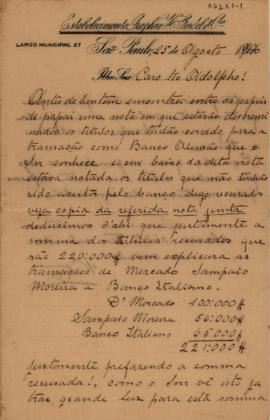 AG2.1.1-1
Estabelecimento Graphico
LARGO MUNICIPAL 27
São Paulo, 25 de Agosto
Illmo Snr Caro Tio Adolpho!
Ante-hontem encontrei entre os papeis
de papai uma nota em que estarão determi
nados os titulos que tinhão servido para a
transação com o Banco Alemão que o
Snr conhece e em baixo da dita nota
estava notada, os titulos que não tinhão
sido aceitos pelo banco digo recusados
veja copia da referida nota junta
deduzimos d'ahi que justamente a
somma dos titulos recusados que
são 220:000# vem explicar as
transações de Mercado Sampaio
Moreira e Banco Italiano.
Do Mercado 100:000#
Sampaio Moreira 56:000#
Banco Italiano 65000#
221:000#
justamente prefazendo a somma
recusada!, como o Snr vê isto já
traz grande luz para esta somma